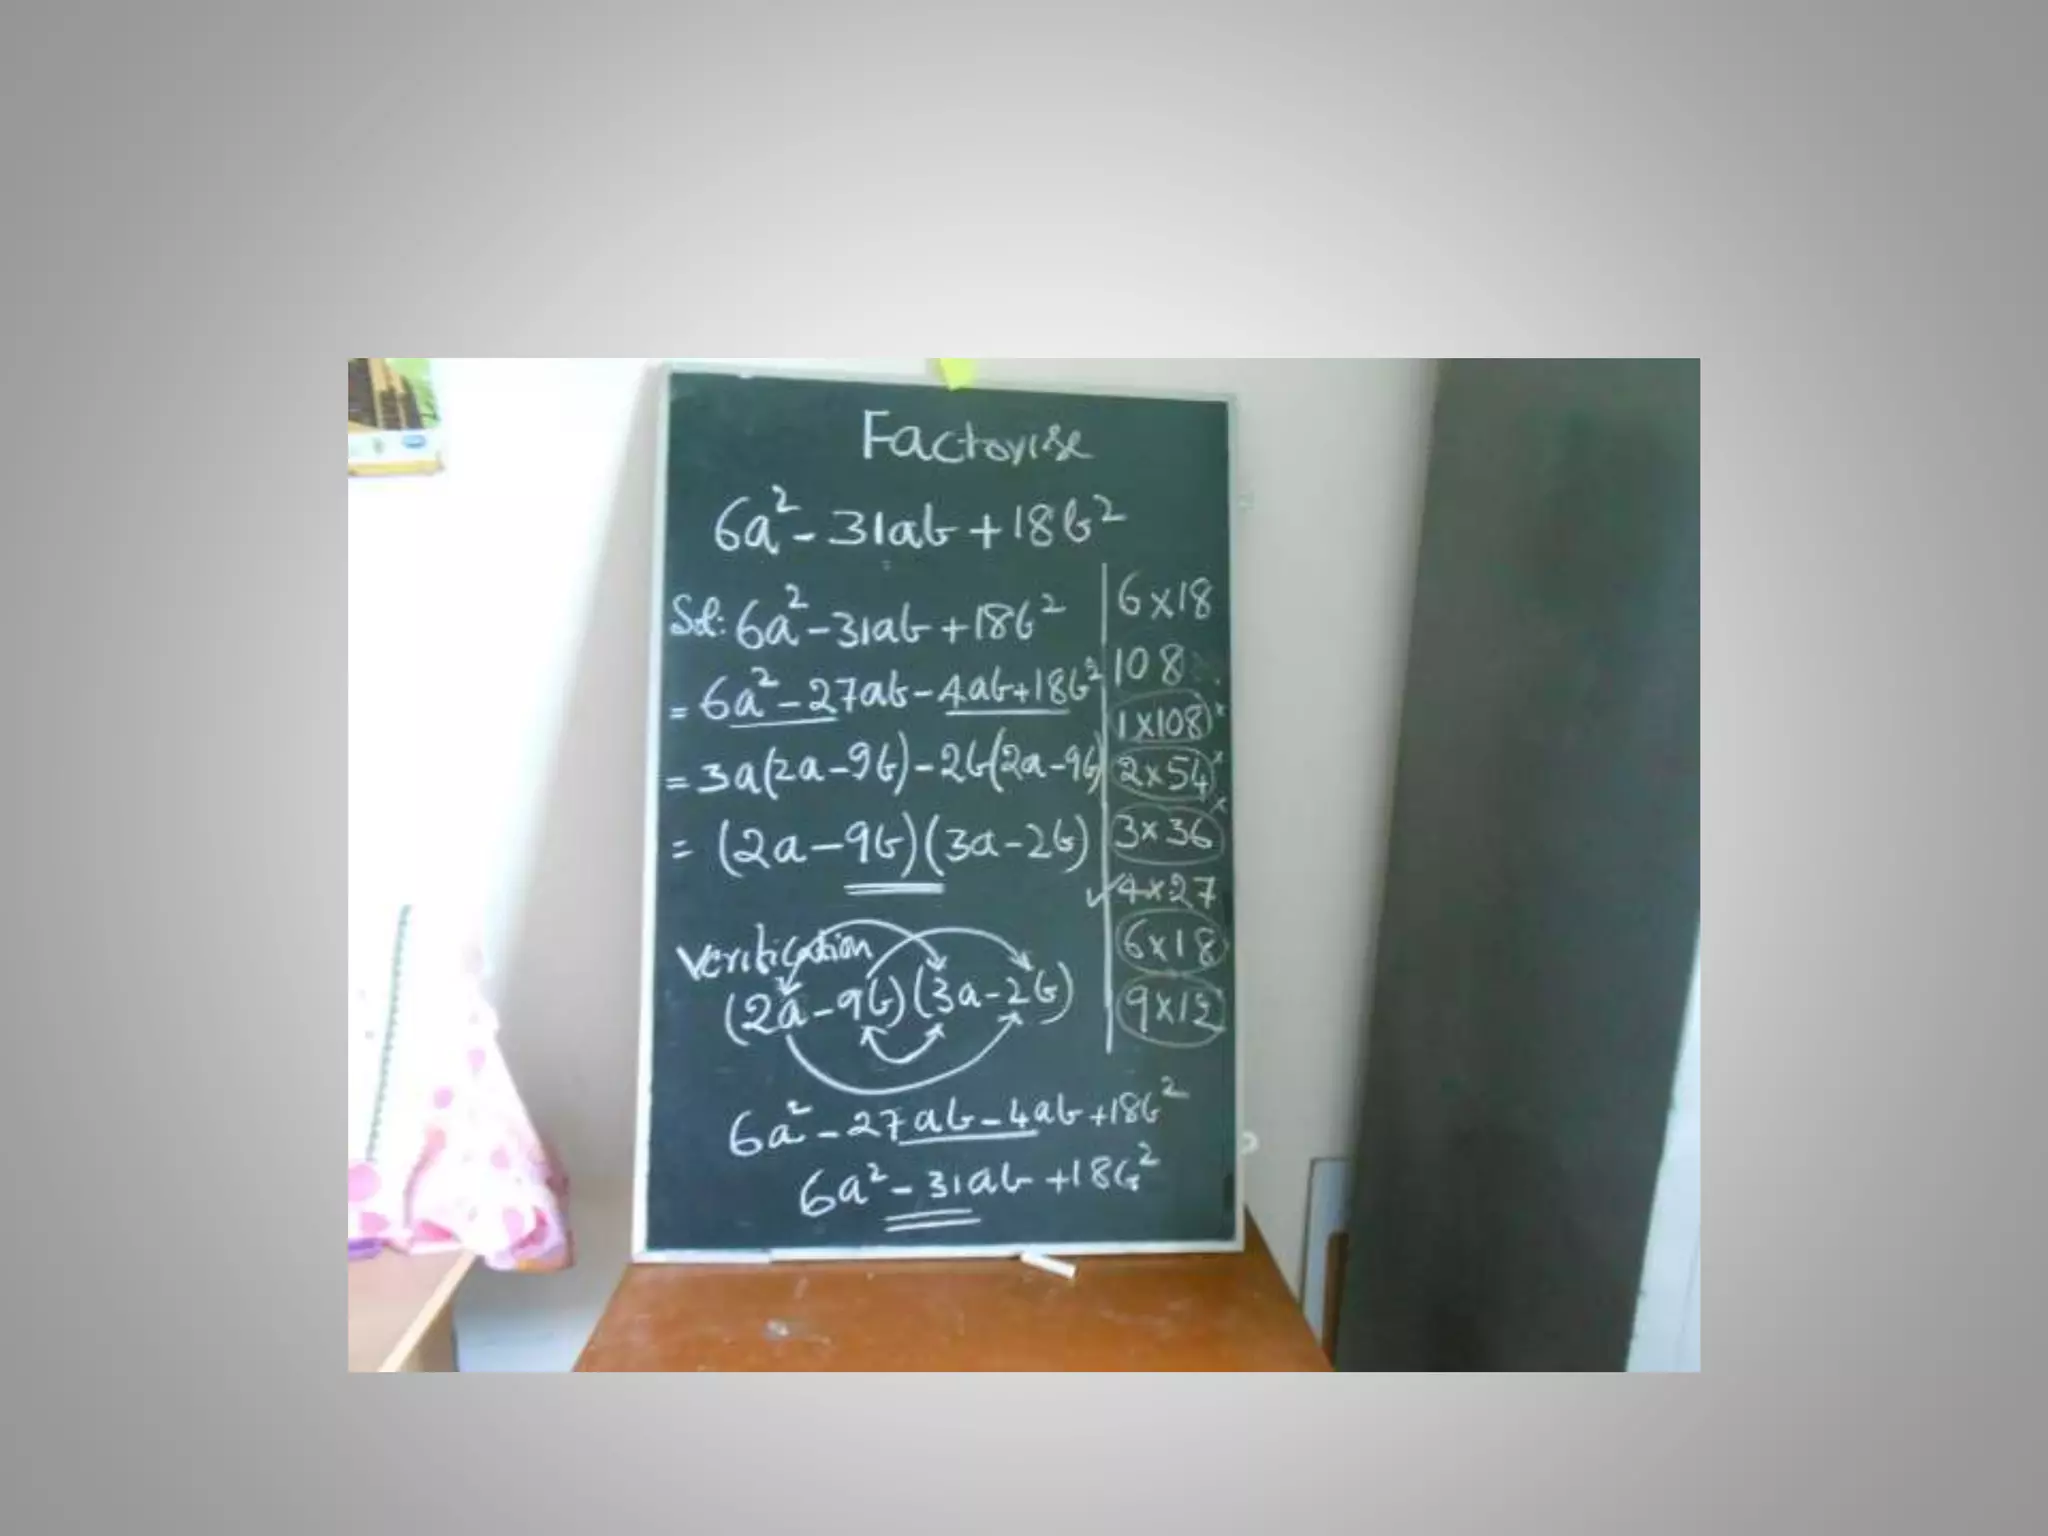 Factorise
6a² - 31ab + 18b²
Sol: 6a² - 31ab + 18b²
= 6a² - 27ab - 4ab + 18b²
= 3a(2a - 9b) - 2b(2a - 9b)
= (2a - 9b)(3a - 2b)
6 x 18
108
1 x 108 x
2 x 54 x
3 x 36 x
✓ 4 x 27
6 x 18
9 x 12
Verification
(2a - 9b)(3a - 2b)
6a² - 27ab - 4ab + 18b²
6a² - 31ab + 18b²